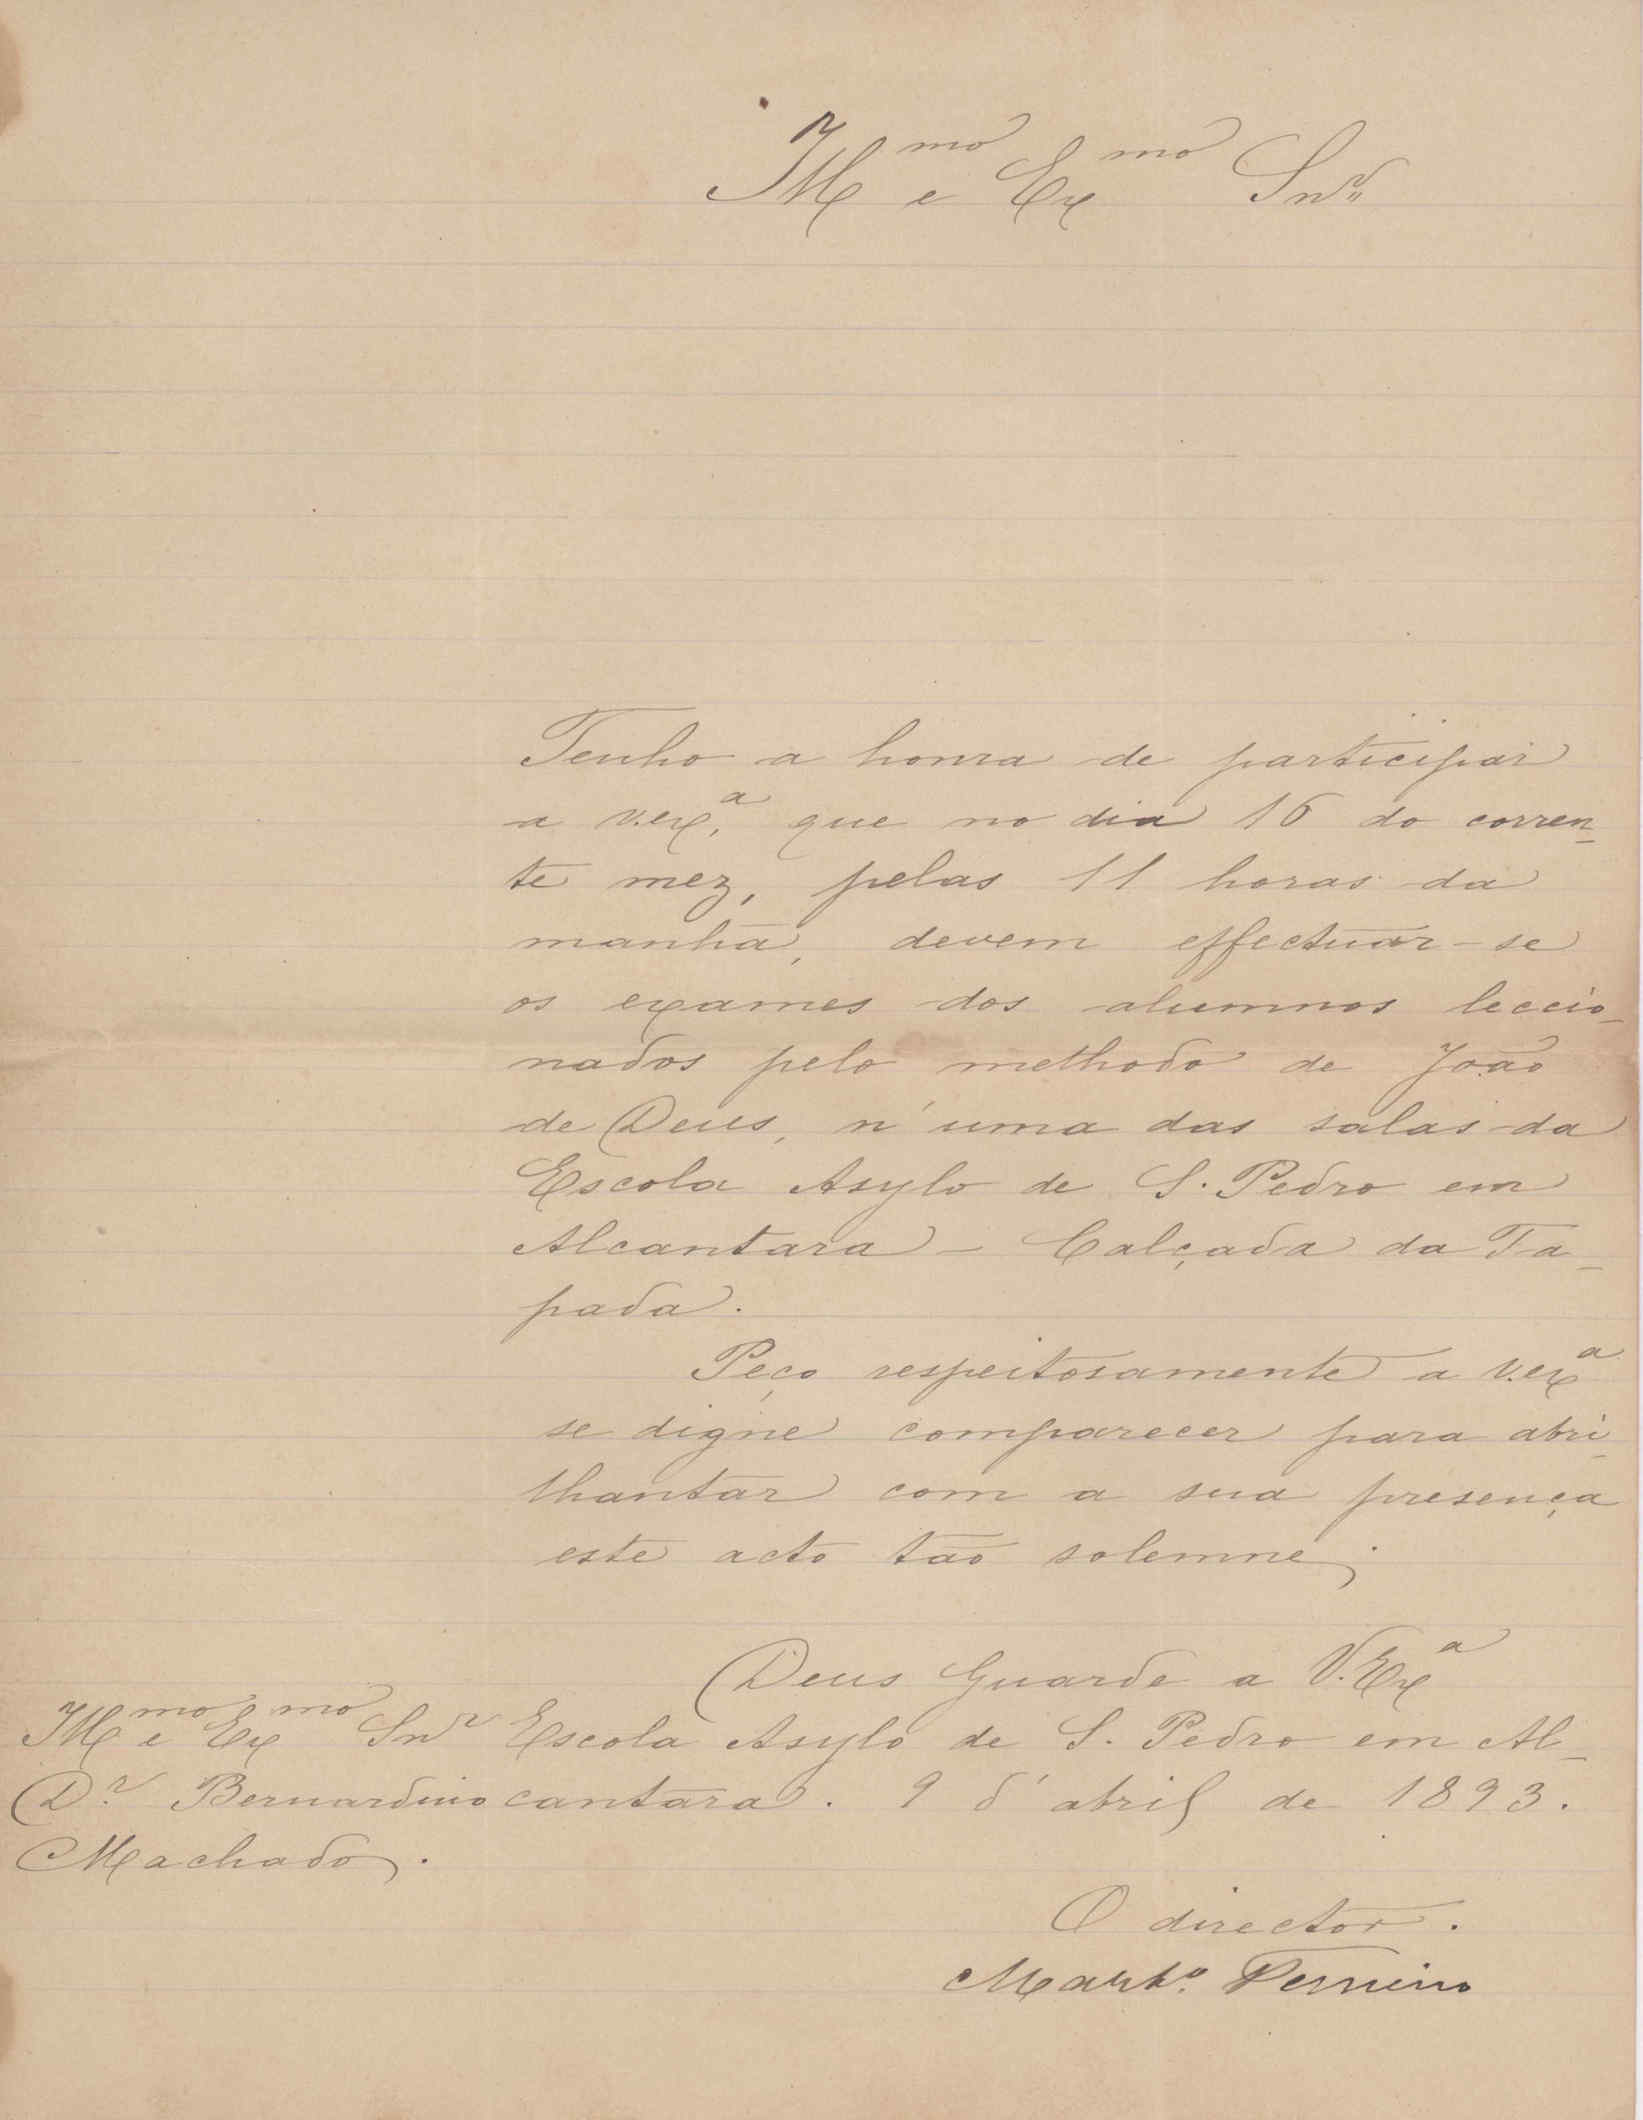 Ill.mo e Ex.mo Snr.
Tenho a honra de participar
a v. ex.a, que no dia 16 do corren-
te mez, pelas 11 horas da
manhã, devem effectuar-se
os exames dos alumnos leccio-
nados pelo methodo de João
de Deus, n'uma das salas da
Escola Asylo de S. Pedro em
Alcantara - Calçada da Ta-
pada.
Peço respeitosamente a v. ex.a
se digne comparecer para abri-
lhantar com a sua presença
este acto tão solemne;
Deus Guarde a V. Ex.a
Escola Asylo de S. Pedro em Al-
cantara. 9 d'abril de 1893.
Ill.mo e Ex.mo Snr
Dr. Bernardino
Machado.
O director.